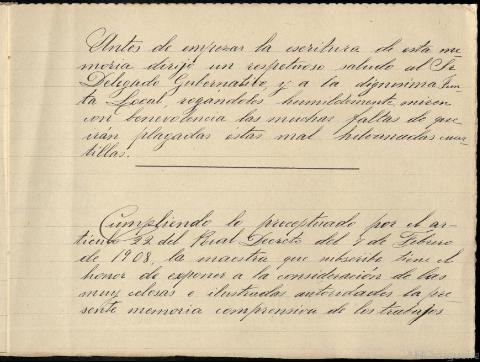 Antes de empezar la escritura de esta me-
moria dirijo un respetuoso saludo al Sr.
Delegado Gubernativo, y a la dignisima Jun-
ta Local, rogandoles humildemente miren
con benevolencia las muchas faltas de que
irán plagadas estas mal hilvanadas cuar-
tillas.
Cumpliendo lo preceptuado por el ar-
ticulo 22 del Real Decreto del 7 de Febrero
de 1908, la maestra que subscribe tiene el
honor de exponer a la consideración de las
muy celosas e ilustradas autoridades la pre-
sente memoria comprensiva de los trabajos